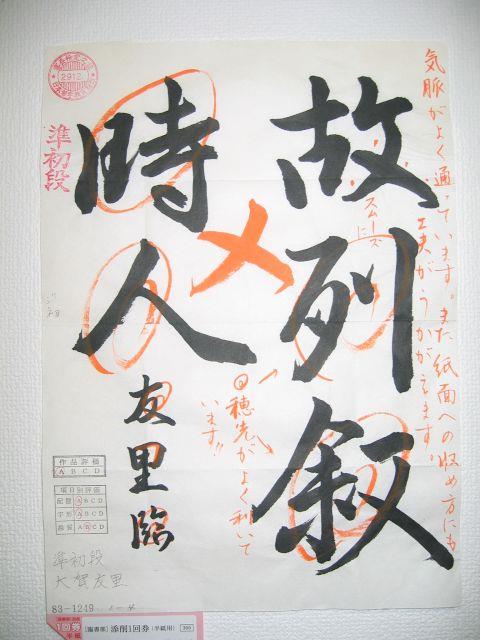 気脈がよく通っています。また紙面への収め方にも
工夫がうかがえます。
故列叙
スムーズ
に
時人
友里臨
穂先がよく利いて
います!!
2912
準初段
作品評価
A B C D
項目別評価
配置 A B C D
字形 A B C D
線質 A B C D
準初段
大賀友里
83-1249
1回券
半紙
[臨書部] 添削1回券 (半紙用)